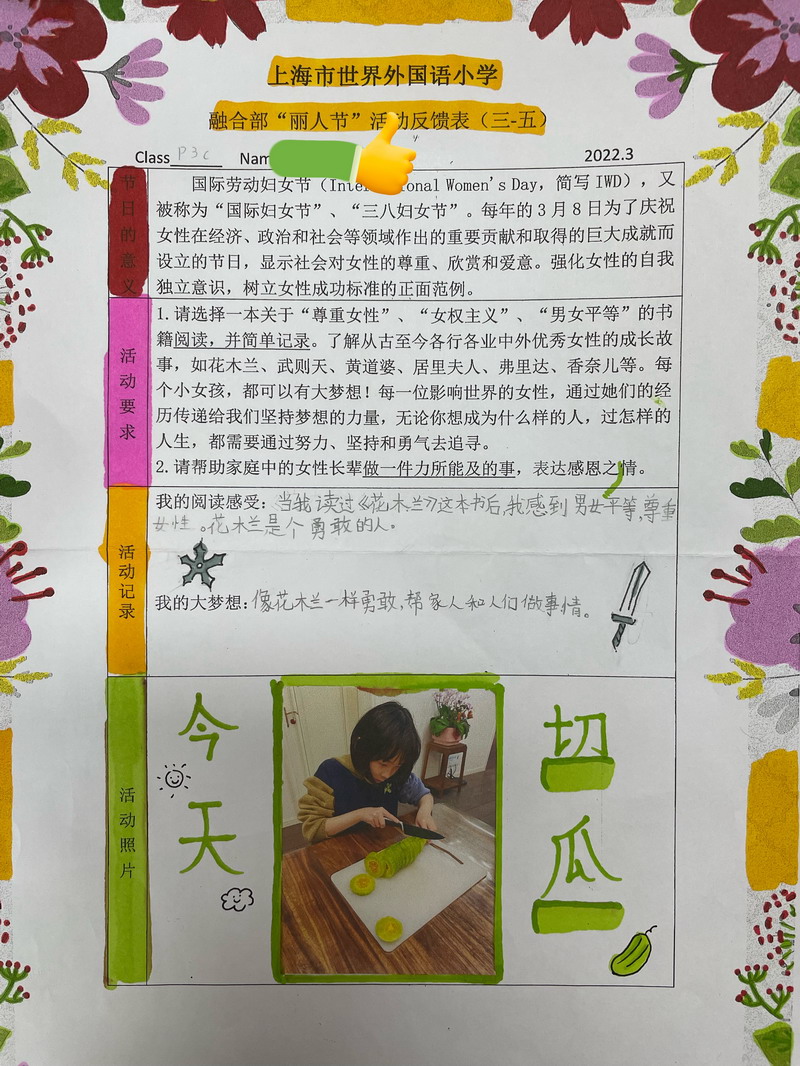 上海市世界外国语小学
融合部“丽人节”活动反馈表（三-五）
Class P3c Nam 2022.3
节日的意义
国际劳动妇女节（Inter onal Women's Day，简写 IWD），又
被称为“国际妇女节”、“三八妇女节”。每年的 3 月 8 日为了庆祝
女性在经济、政治和社会等领域作出的重要贡献和取得的巨大成就而
设立的节日，显示社会对女性的尊重、欣赏和爱意。强化女性的自我
独立意识，树立女性成功标准的正面范例。
活动要求
1.请选择一本关于“尊重女性”、“女权主义”、“男女平等”的书
籍阅读，并简单记录。了解从古至今各行各业中外优秀女性的成长故
事，如花木兰、武则天、黄道婆、居里夫人、弗里达、香奈儿等。每
个小女孩，都可以有大梦想！每一位影响世界的女性，通过她们的经
历传递给我们坚持梦想的力量，无论你想成为什么样的人，过怎样的
人生，都需要通过努力、坚持和勇气去追寻。
2.请帮助家庭中的女性长辈做一件力所能及的事，表达感恩之情。
活动记录
我的阅读感受：当我读过《花木兰》这本书后，我感到男女平等，尊重
女性。花木兰是个勇敢的人。
我的大梦想：像花木兰一样勇敢，帮家人和人们做事情。
活动照片
今天
切瓜